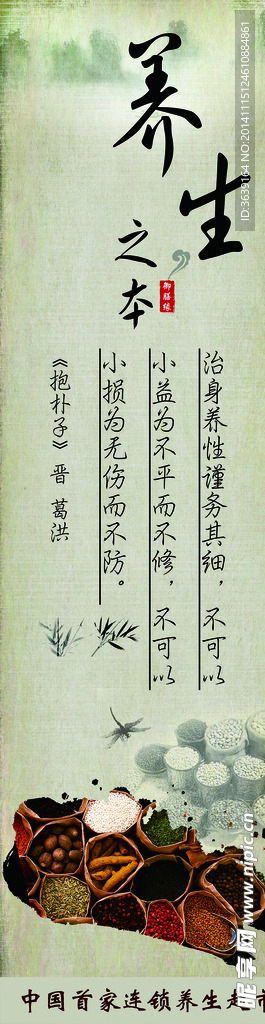 养生
之本
御膳缘
治身养性谨务其细，不可以
小益为不平而不修，不可以
小损为无伤而不防。
《抱朴子》 晋 葛洪
中国首家连锁养生超市
ID:3639164 NO:20141115124610884861
昵享网 www.nipic.cn
www.nipic.com